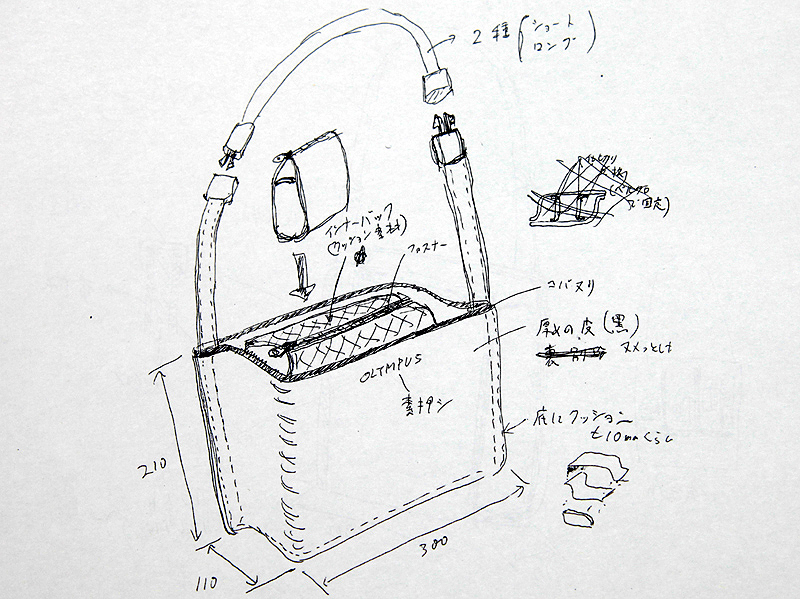 2種(ショート
ロング)
インナーバック
(クッション素材)
ファスナー
コバヌリ
厚めの皮(黒)
裏
ヌメっとした
OLYMPUS
素押シ
底にクッション
t10mmくらい
210
110
300